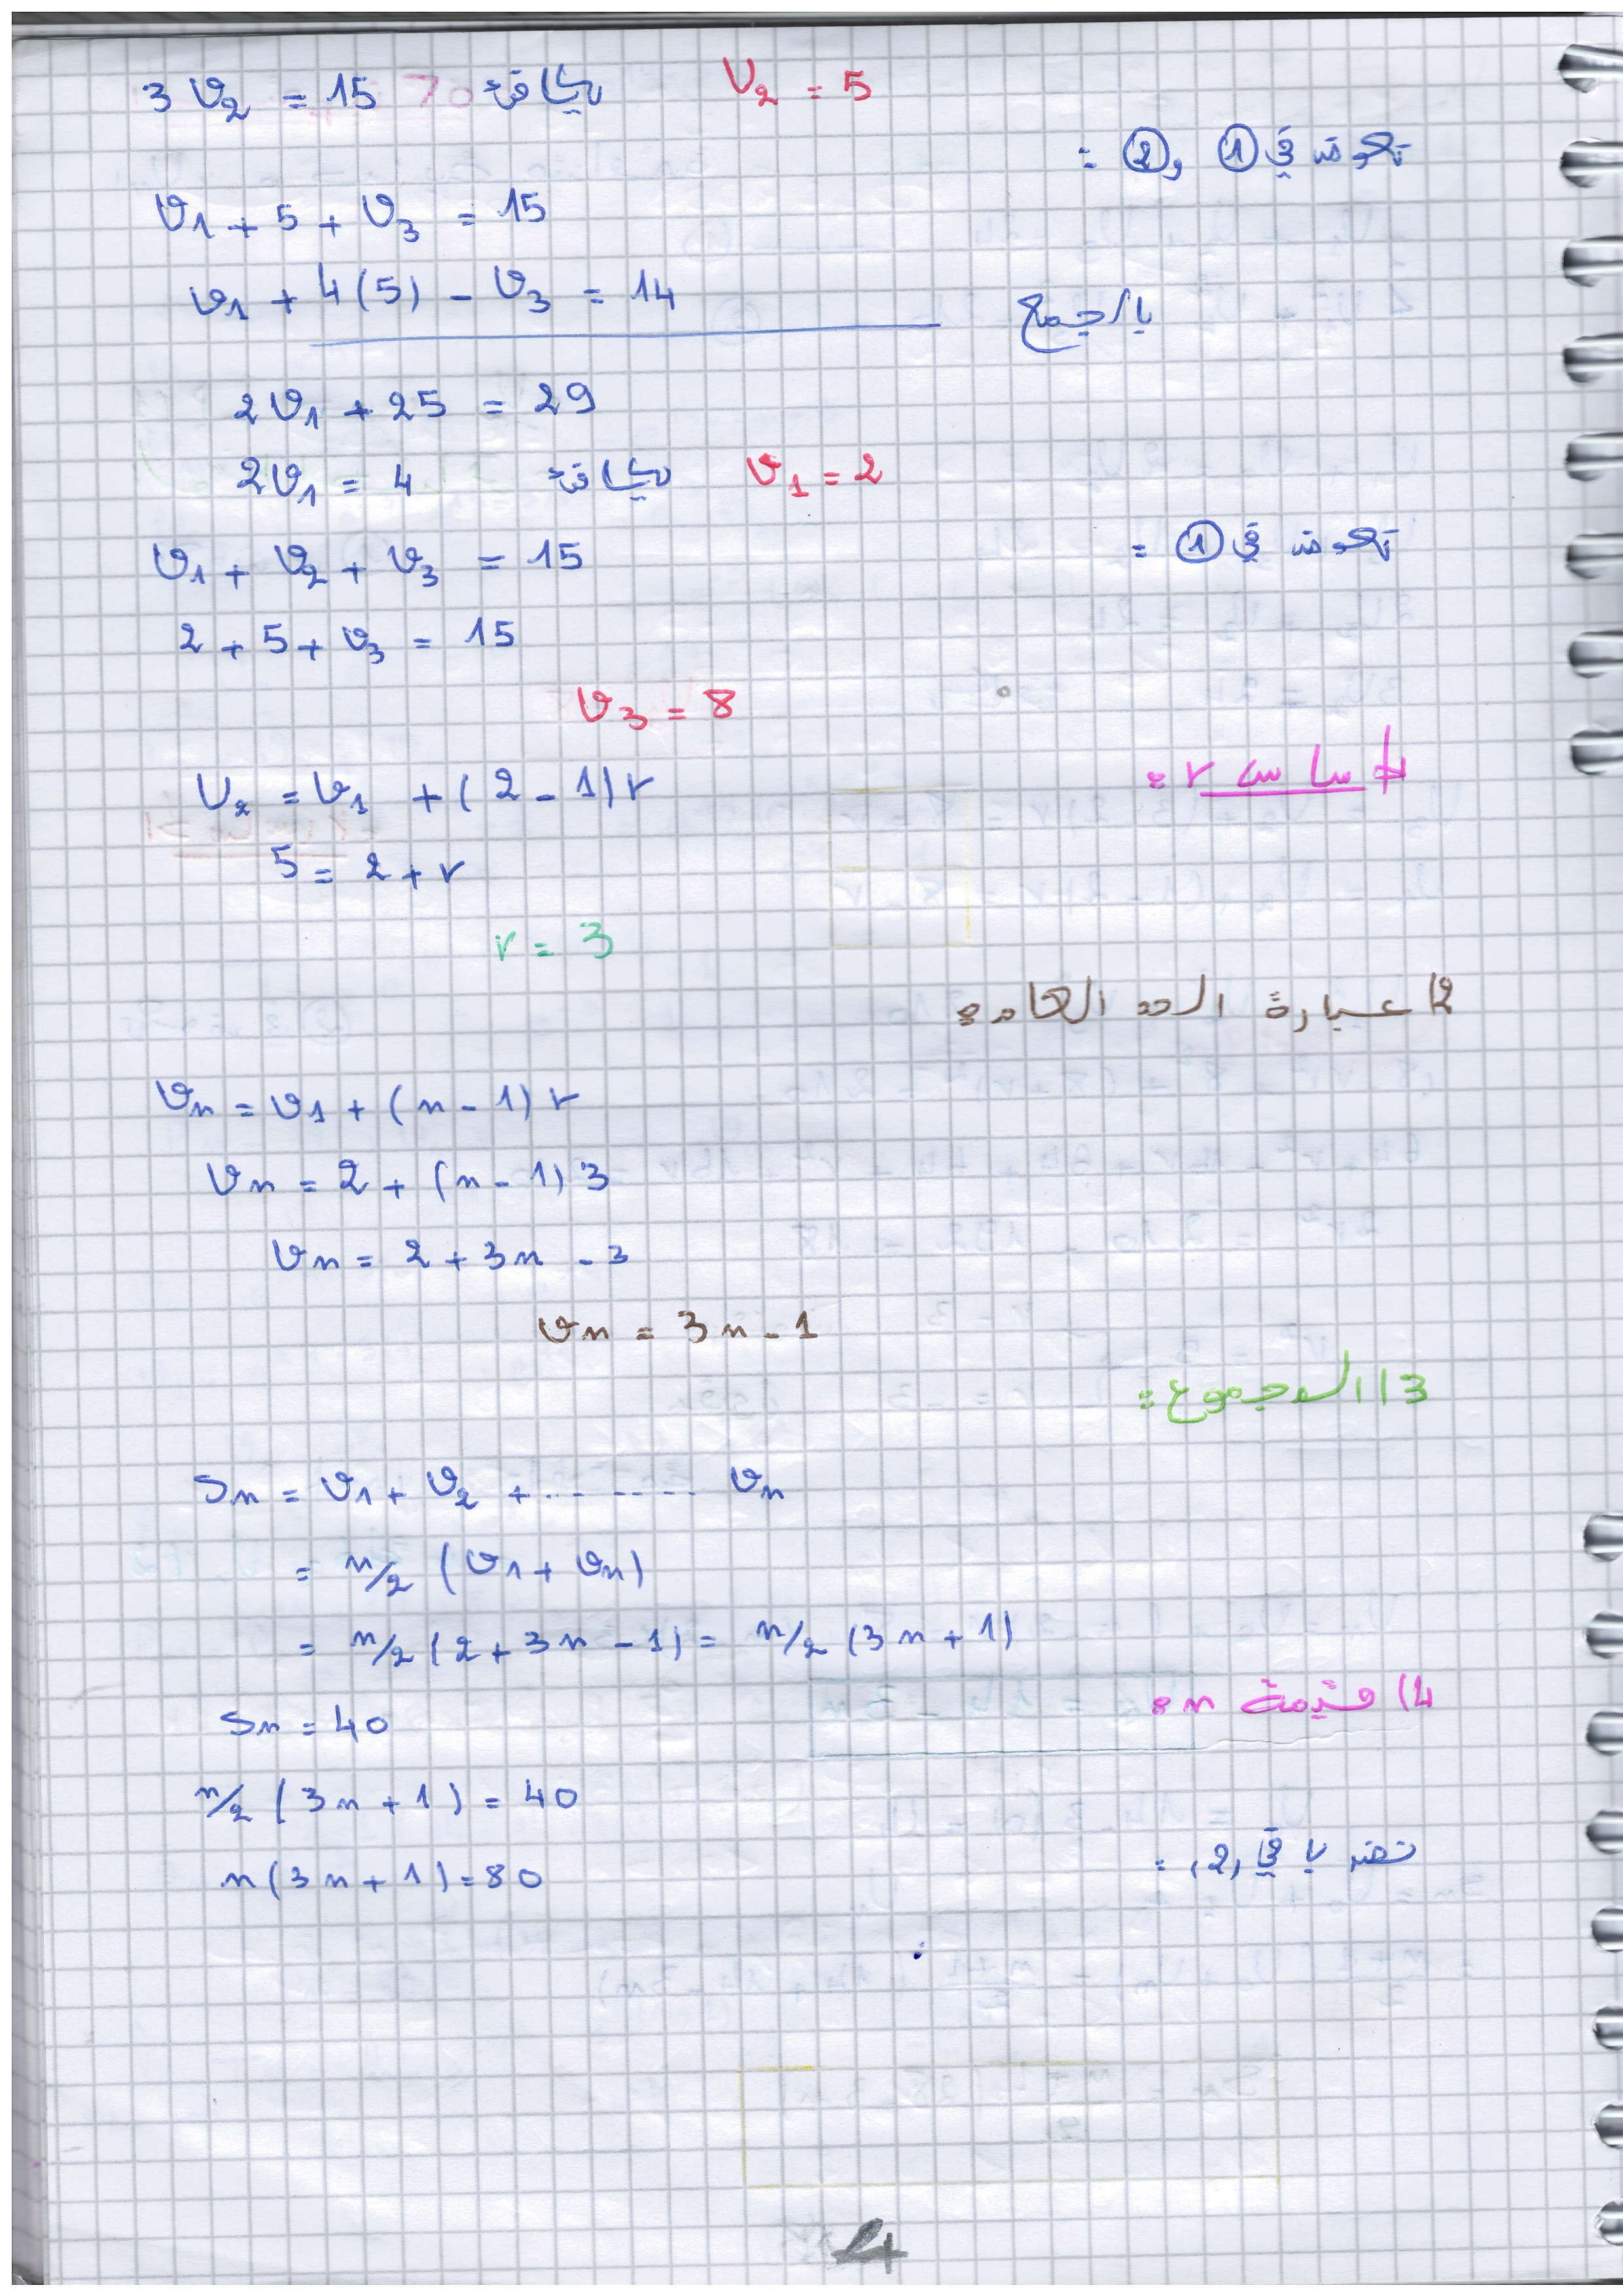 3 V₂ = 15 بالتالي V₂ = 5
نعوض في ① و ② :
V₁ + 5 + V₃ = 15
V₁ + 4(5) - V₃ = 14
بالجمع
2V₁ + 25 = 29
2V₁ = 4 بالتالي V₁ = 2
نعوض في ① :
V₁ + V₂ + V₃ = 15
2 + 5 + V₃ = 15
V₃ = 8
الأساس r :
V₂ = V₁ + (2 - 1)r
5 = 2 + r
r = 3
2) عبارة الحد العام :
Vn = V₁ + (n - 1) r
Vn = 2 + (n - 1) 3
Vn = 2 + 3n - 3
Vn = 3n - 1
3) المجموع :
Sn = V₁ + V₂ + ........ Vn
= n/2 (V₁ + Vn)
= n/2 (2 + 3n - 1) = n/2 (3n + 1)
4) قيمة n :
Sn = 40
n/2 (3n + 1) = 40
نضرب في 2, :
n(3n + 1) = 80
4